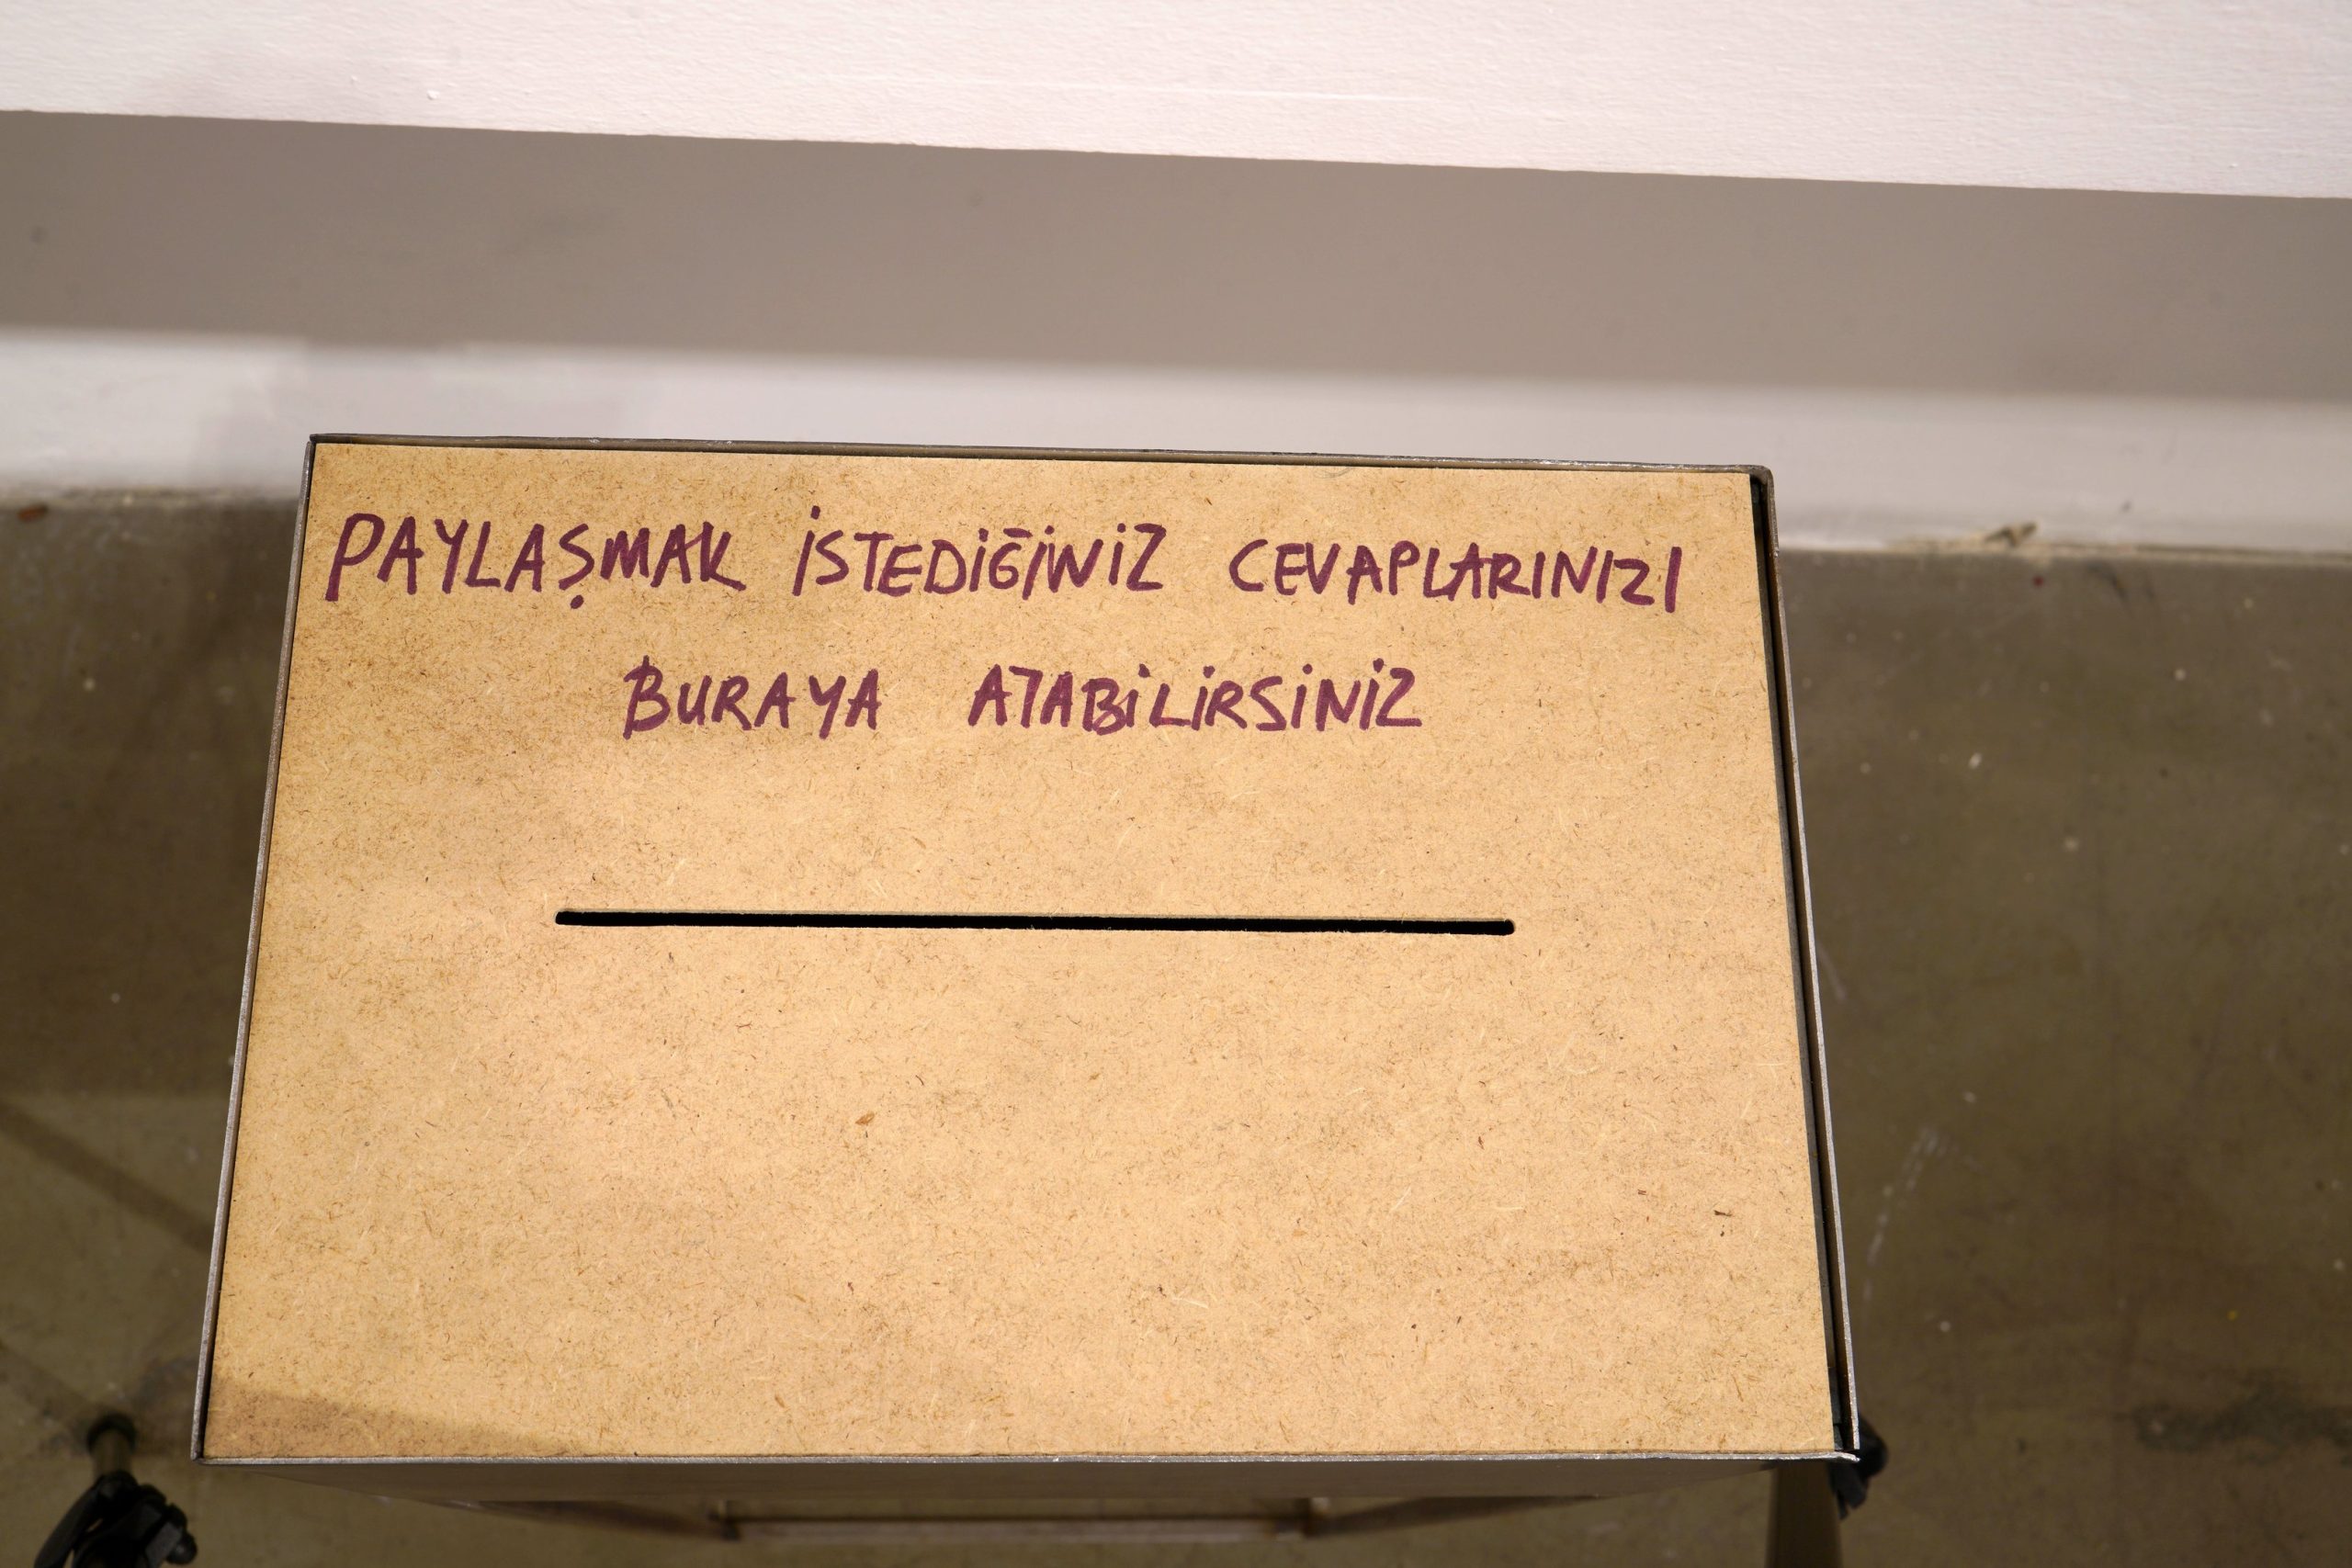 PAYLAŞMAK İSTEDİĞİNİZ CEVAPLARINIZI
BURAYA ATABİLİRSİNİZ